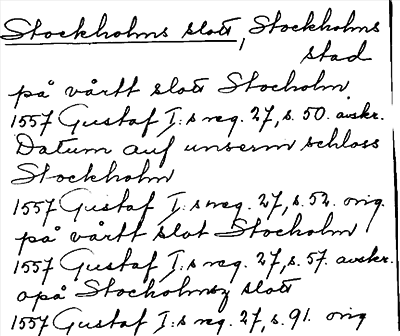 Stockholms slott, Stockholms
stad
på vårtt slott Stocholm
1557 Gustaf I:s reg. 27, s. 50. avskr.
Datum auf unserm schloss
Stockholm
1557 Gustaf I:s reg. 27, s. 52. orig.
på vårtt slot Stocholm
1557 Gustaf I:s reg. 27, s. 57. avskr.
opå Stocholmsz slott
1557 Gustaf I:s reg. 27, s. 91. orig